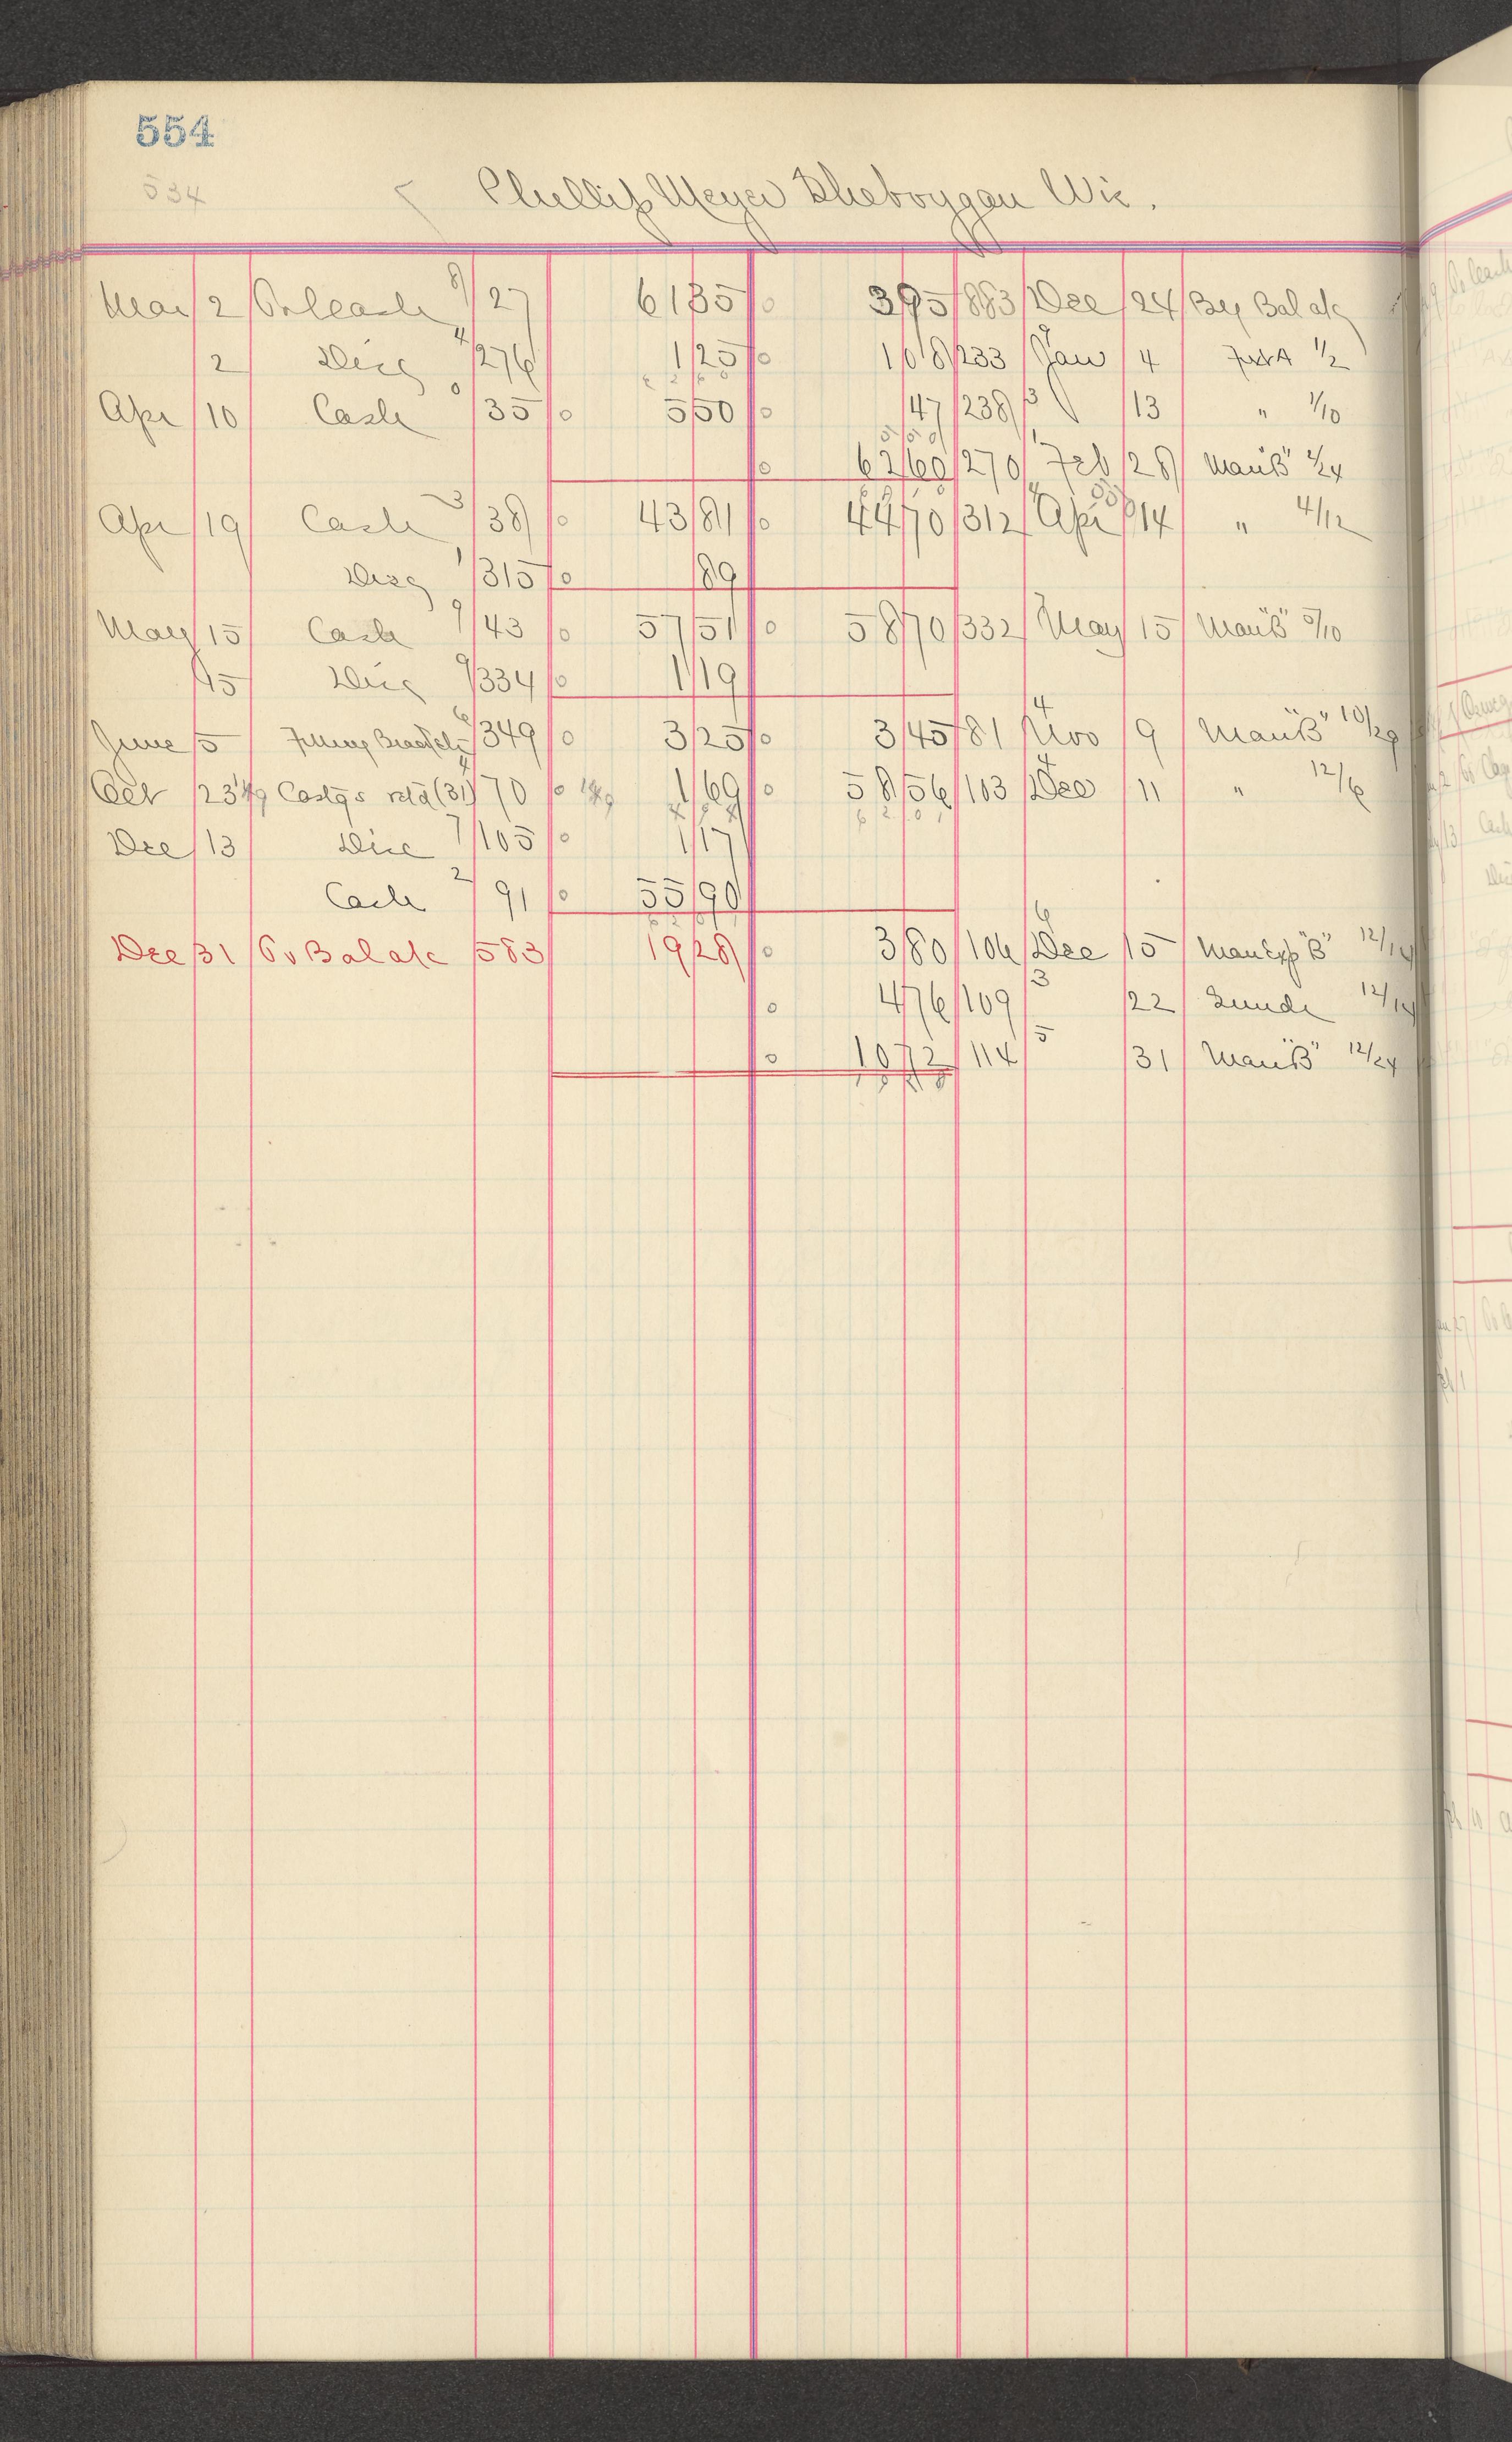 554
534
Phillip Meyer Sheboygan Wis.
Mar 2 To Cash 8/27 61 35 3 95 883 Dec 24 By Bal a/c
2 Disc 4/276 1 25 1 08 233 Jan 4 1/2
Apr 10 Cash 0/35 5 50 47 238 3 13 " 1/10
5 50
62 60 270 1 Feb 28 Man "B" 2/24
Apr 19 Cash 3/38 43 81 44 70 312 Apr 14 " 4/12
Disc 1/315 89
May 15 Cash 9/43 57 51 58 70 332 May 15 Man "B" 5/10
15 Disc 9/334 1 19
June 5 6/349 3 25 3 45 81 4 Nov 9 Man "B" 10/29
Oct 23 Castgs retd (31) 4/70 1 69 58 56 103 4 Dec 11 " 12/6
Dec 13 Disc 7/105 1 17
Cash 2/91 55 90
Dec 31 To Bal a/c 583 19 28 3 80 106 6 Dec 15 Man Exp "B" 12/14
4 76 109 3 22 12/14
10 72 114 5 31 Man "B" 12/24
19 28